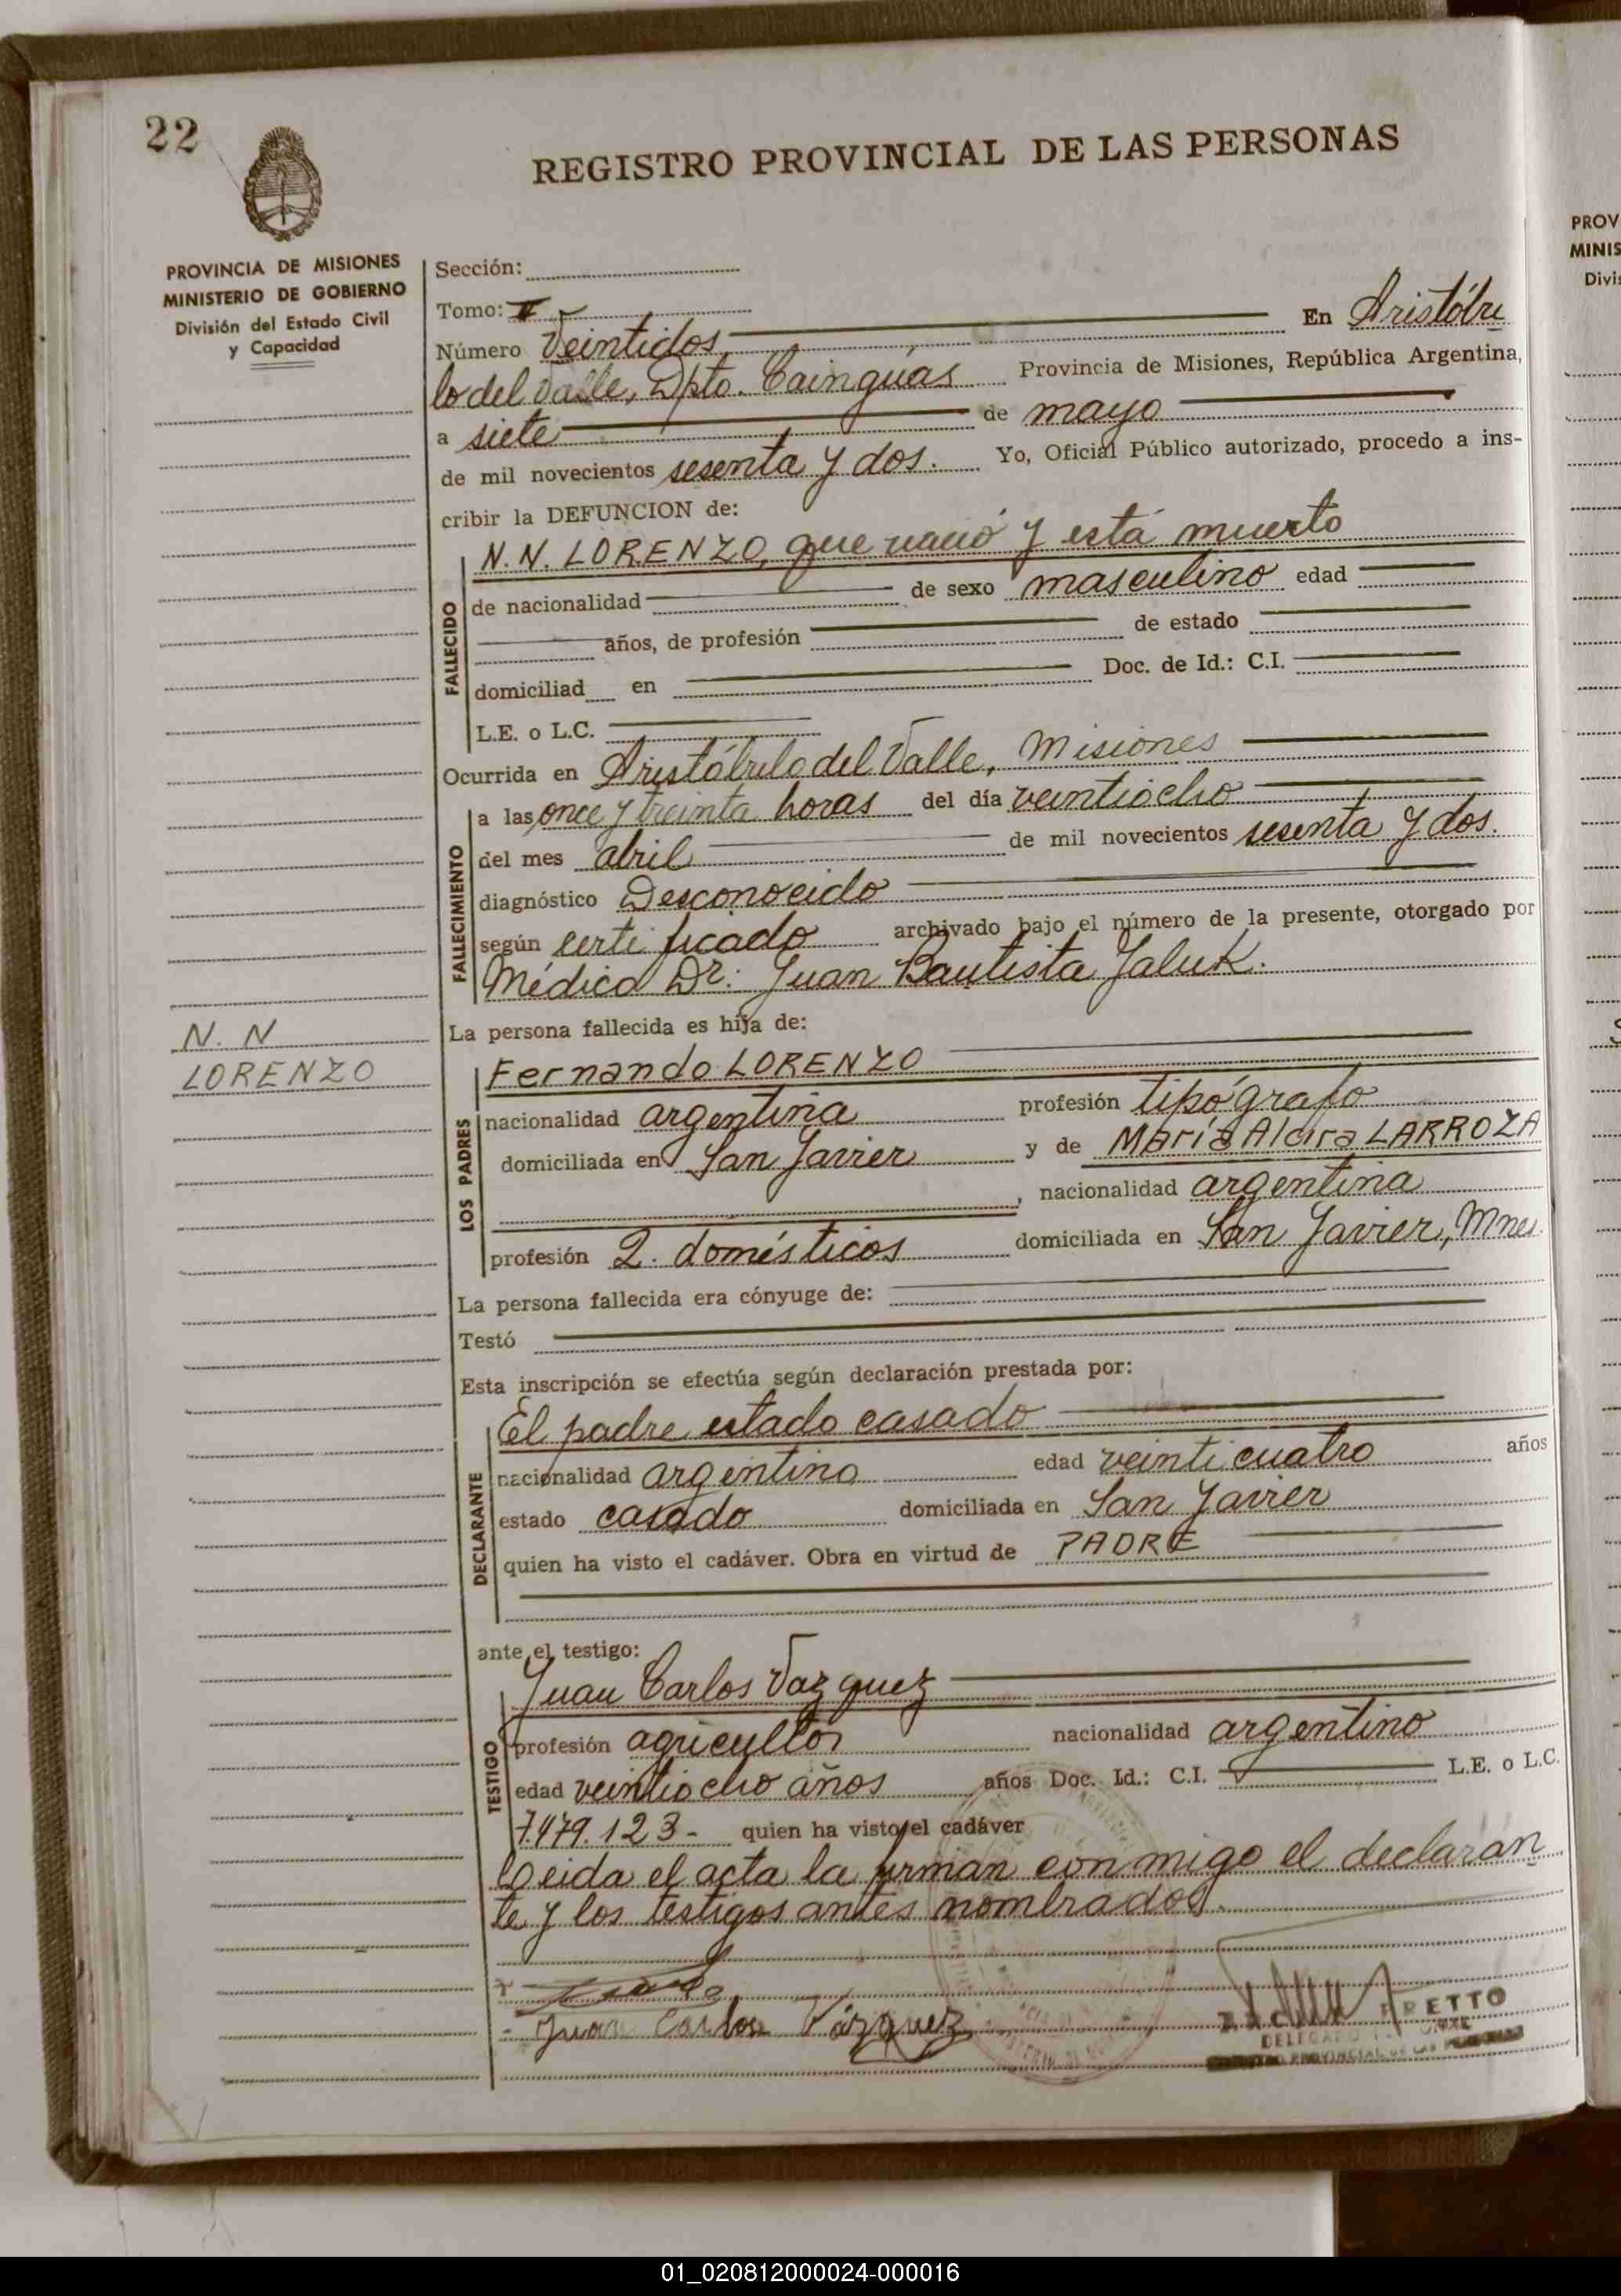 22
REGISTRO PROVINCIAL DE LAS PERSONAS
PROVINCIA DE MISIONES
MINISTERIO DE GOBIERNO
División del Estado Civil
y Capacidad
Sección:
Tomo: II
Número Veintidos En Aristóbu
lo del Valle, Dpto. Cainguás Provincia de Misiones, República Argentina,
a siete de mayo
de mil novecientos sesenta y dos. Yo, Oficial Público autorizado, procedo a ins-
cribir la DEFUNCION de:
FALLECIDO
N. N. LORENZO, que nació y está muerto
de nacionalidad de sexo masculino edad
años, de profesión de estado
domiciliad en Doc. de Id.: C.I.
L.E. o L.C.
Ocurrida en Aristóbulo del Valle, Misiones
FALLECIMIENTO
a las once y treinta horas del día veintiocho
del mes abril de mil novecientos sesenta y dos.
diagnóstico Desconocido
según certificado archivado bajo el número de la presente, otorgado por
Médico Dr: Juan Bautista Jaluk.
La persona fallecida es hija de:
N. N
LORENZO
LOS PADRES
Fernando LORENZO
nacionalidad argentina profesión tipógrafo
domiciliada en San Javier y de María Alcira LARROZA
, nacionalidad argentina
profesión Q. domésticos domiciliada en San Javier, Mnes.
La persona fallecida era cónyuge de:
Testó
Esta inscripción se efectúa según declaración prestada por:
DECLARANTE
El padre estado casado
nacionalidad argentino edad veinticuatro años
estado casado domiciliada en San Javier
quien ha visto el cadáver. Obra en virtud de PADRE
ante el testigo:
TESTIGO
Juan Carlos Vazquez
profesión agricultor nacionalidad argentino
edad veintiocho años años Doc. Id.: C.I. L.E. o L.C.
7.479.123- quien ha visto el cadáver
Leida el acta la firman conmigo el declaran
te y los testigos antes nombrados.
Juan Carlos Vázquez
PROV
MINIS
Divis
01_020812000024-000016